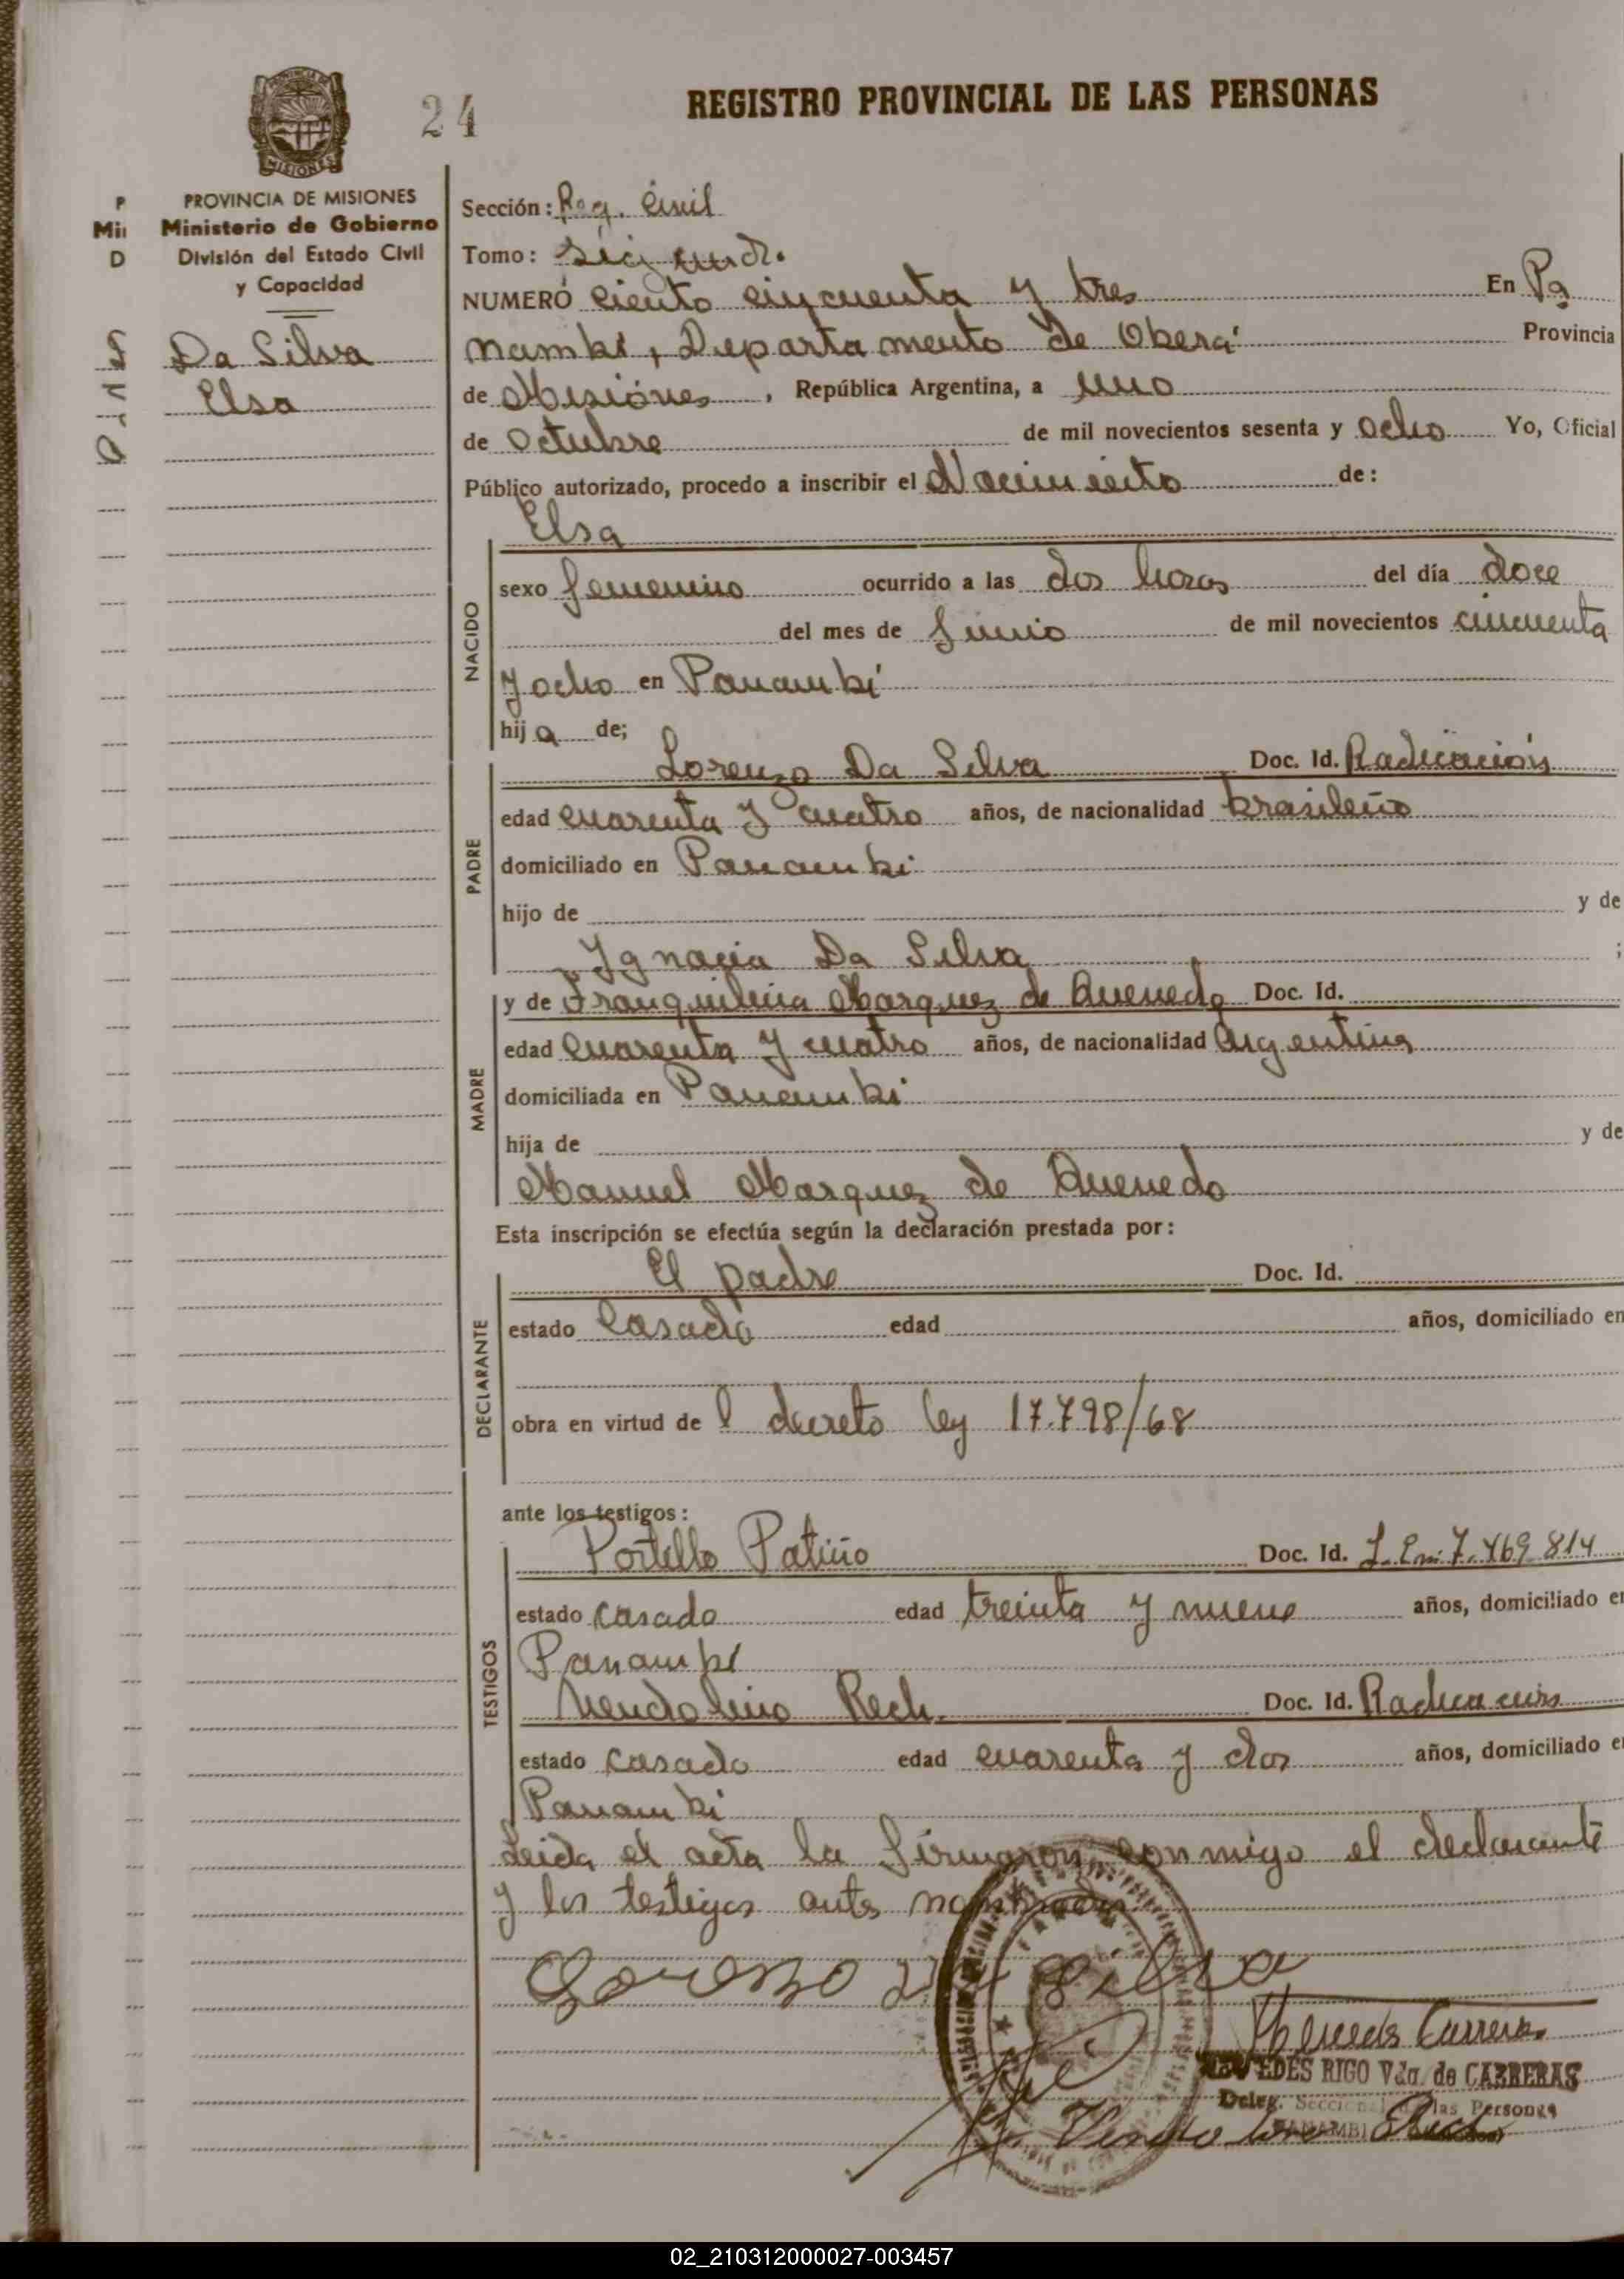 24
REGISTRO PROVINCIAL DE LAS PERSONAS
MISIONES
PROVINCIA DE MISIONES
Ministerio de Gobierno
División del Estado Civil
y Capacidad
P
Mii
D
Da Silva
Elsa
Sección: Reg. Civil
Tomo: Segundo
NUMERO ciento cincuenta y tres En Pa
nambí, Departamento de Oberá Provincia
de Misiones, República Argentina, a uno
de Octubre de mil novecientos sesenta y ocho Yo, Oficial
Público autorizado, procedo a inscribir el Nacimiento de:
NACIDO
Elsa
sexo femenino ocurrido a las dos horas del día doce
del mes de Junio de mil novecientos cincuenta
y ocho en Panambí
hija de;
PADRE
Lorenzo Da Silva Doc. Id. Radicación
edad cuarenta y cuatro años, de nacionalidad brasileño
domiciliado en Panambi
hijo de y de
Ygnacia Da Silva ;
MADRE
y de Franquilina Marquez de Quevedo Doc. Id.
edad cuarenta y cuatro años, de nacionalidad Argentina
domiciliada en Panambi
hija de y de
Manuel Marquez de Quevedo
Esta inscripción se efectúa según la declaración prestada por:
DECLARANTE
El padre Doc. Id.
estado Casado edad años, domiciliado en
obra en virtud de l decreto ley 17.798/68
ante los testigos:
TESTIGOS
Portillo Patiño Doc. Id. 7.469.814
estado casado edad treinta y nueve años, domiciliado en
Panambí
Vendolino Rech. Doc. Id. Radicación
estado casado edad cuarenta y dos años, domiciliado e
Panambi
Leida el acta la firmaron conmigo el declarante
y los testigos antes nombrados
Lorenzo Da Silva
Mercedes Carreras
MERCEDES RIGO Vda. de CARRERAS
Deleg. Seccional de las Personas
PANAMBI
Vendolino Rech
02_210312000027-003457